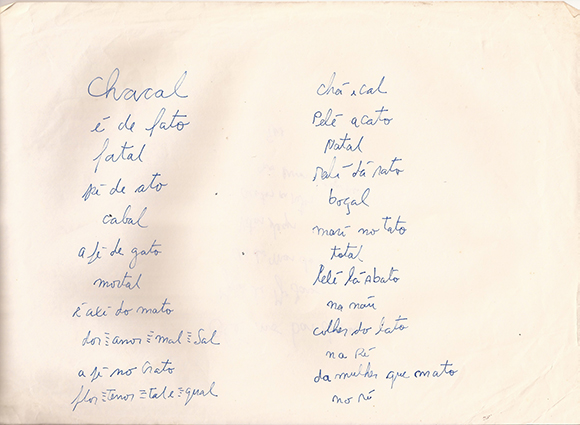 Chacal
é de fato
fatal
pé de ato
cabal
a fé de gato
mortal
é axé do mato
dos amos mal Sal
a fé no Crato
flos tenos tal e qual
chá e cal
Pelé acato
Natal
dá rato
boçal
maré no tato
total
Pelé
na nau
colher do
na Ré
da mulher que mato
no ré